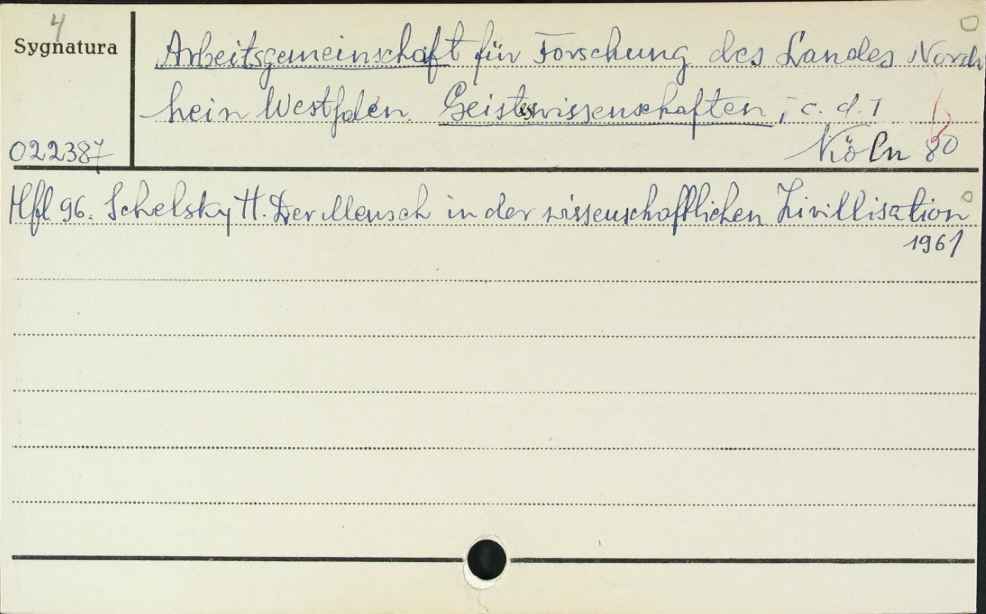 4
Sygnatura
022387
Arbeitsgemeinschaft für Forschung des Landes Nordr
hein Westfalen. Geisteswissenschaften, c. d. 1
Köln 80
Hft 96. Schelsky H. Der Mensch in der wissenschaftlichen Zivillisation
1961